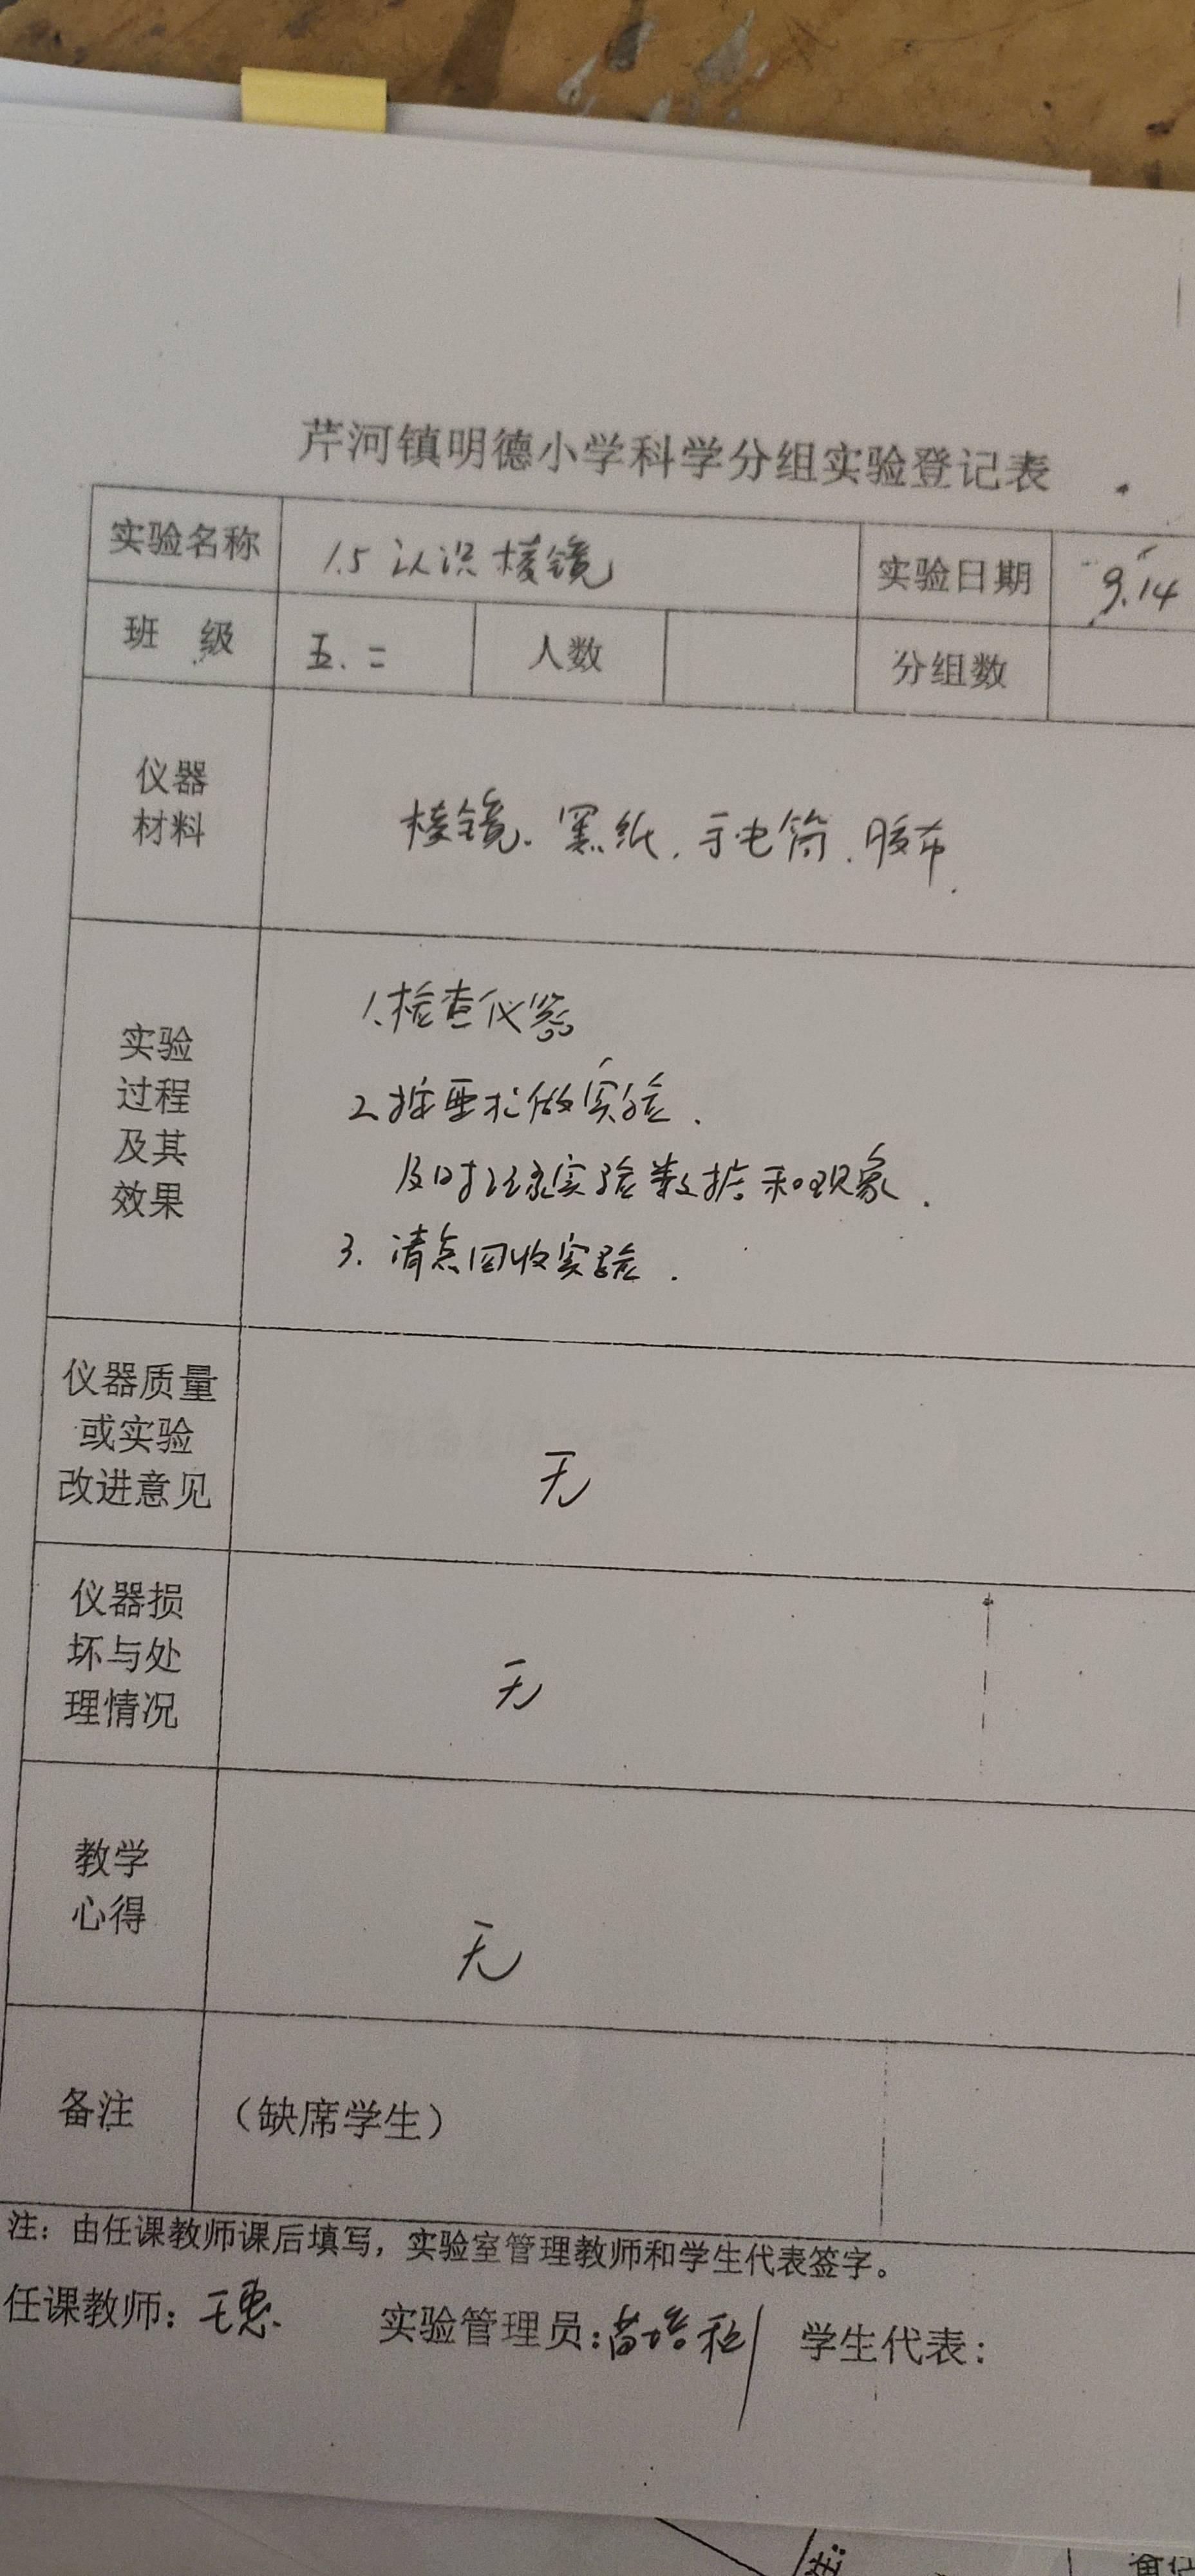 芹河镇明德小学科学分组实验登记表
实验名称 1.5 认识棱镜 实验日期 9.14
班 级 五.二 人数 分组数
仪器
材料
棱镜、黑纸、手电筒、胶布.
实验
过程
及其
效果
1、检查仪器
2、按要求做实验.
及时记录实验数据和现象.
3. 清点回收实验.
仪器质量
或实验
改进意见
无
仪器损
坏与处
理情况
无
教学
心得
无
备注 （缺席学生）
注：由任课教师课后填写，实验室管理教师和学生代表签字。
任课教师： 实验管理员： 学生代表：